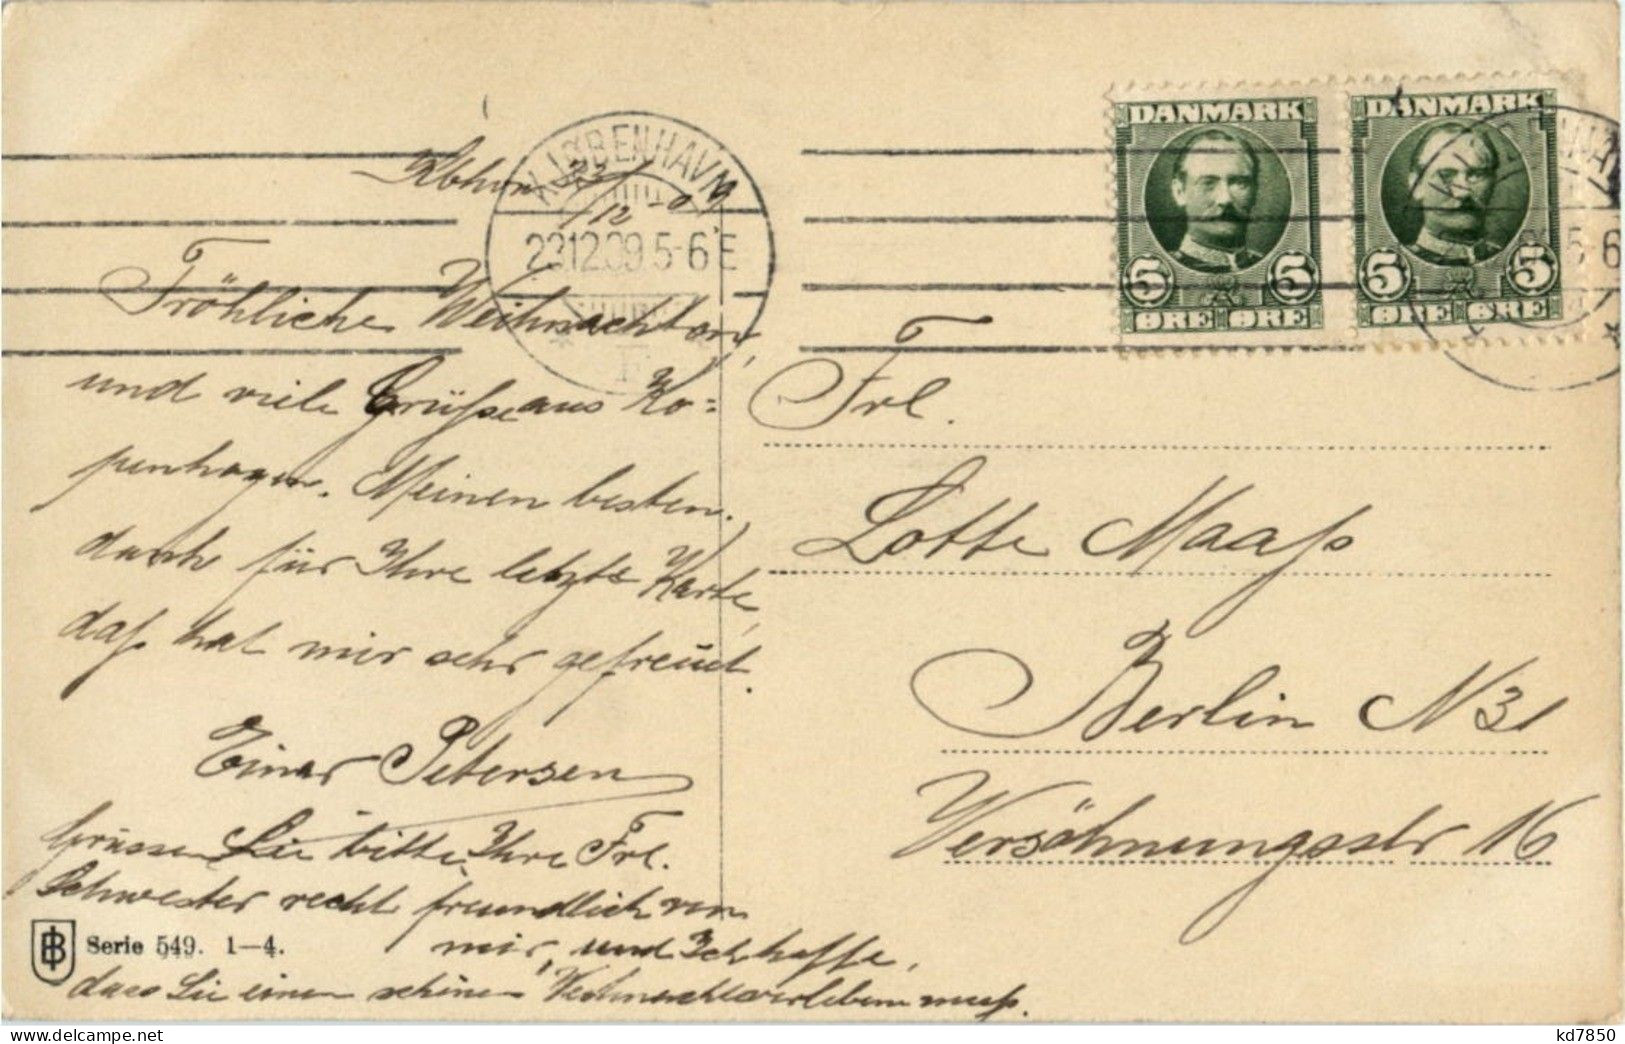 Kbhvn 23/12-09
KJØBENHAVN
23.12.09.5-6 E
F
Fröhliche Weihnachten,
und viele Grüsse aus Ko=
penhagen. Meinen besten
dank für Ihre letzte Karte,
daß hat mir sehr gefreut.
Einar Petersen
Grüssen Sie bitte Ihre Frl.
Schwester recht freundlich von
mir, und Ich hoffe,
dass Sie einen schönen Weihnachts erleben muß.
Serie 549. 1-4.
DANMARK
5 5
ØRE ØRE
DANMARK
5 5
ØRE ØRE
Frl.
Lotte Maaß
Berlin N 31
Versöhnungsstr 16
kd7850